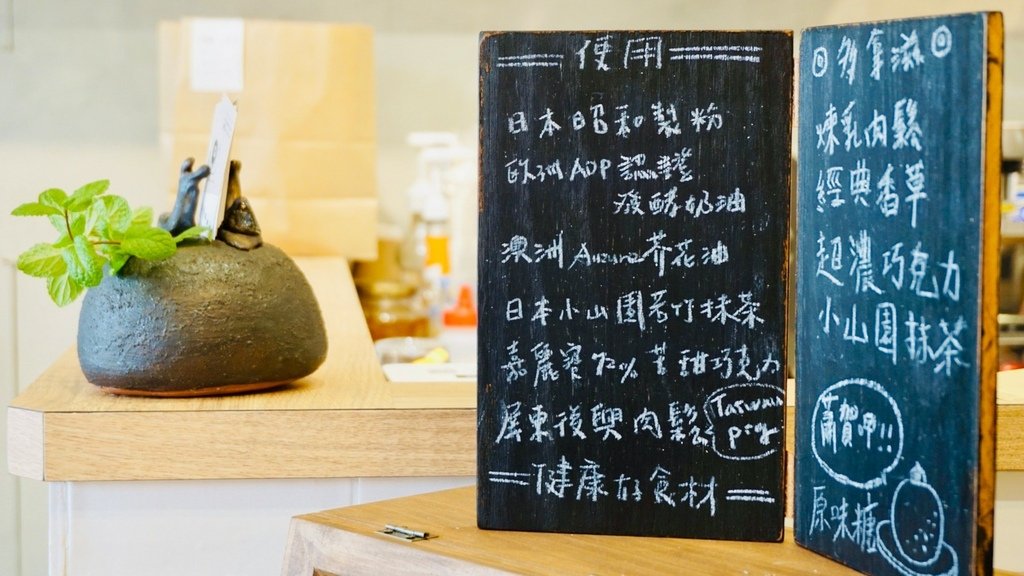 使用
日本昭和製粉
歐洲AOP認證
發酵奶油
澳洲 Auzure芥花油
日本小山園若竹抹茶
嘉麗寶72%苦甜巧克力
屏東復興肉鬆
Taiwan
pig
健康好食材
多拿滋
煉乳肉鬆
經典香草
超濃巧克力
小山園抹茶
蕭賀呷!!
原味糖